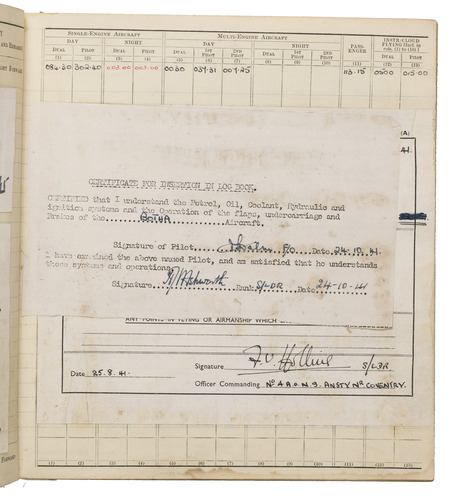 SINGLE-ENGINE AIRCRAFT
MULTI-ENGINE AIRCRAFT
PASSENGER
INSTR/CLOUD FLYING [Incl. in cols. (1) to (10)]
DAY
NIGHT
DAY
NIGHT
DUAL
PILOT
DUAL
PILOT
DUAL
1ST PILOT
2ND PILOT
DUAL
1ST PILOT
2ND PILOT
DUAL
PILOT
(1) (2) (3) (4) (5) (6) (7) (8) (9) (10) (11) (12) (13)
302.40 003.00 0030 113.15 015.00
(A)
41.
CERTIFICATE FOR INSERTION IN LOG BOOK.
CERTIFIED that I understand the Petrol, Oil, Coolant, Hydraulic and
ignition systems and the Operation of the flaps, undercarriage and
Brakes of the BOTHA Aircraft.
Signature of Pilot P/O Date 24.10.41.
I have examined the above named Pilot, and am satisfied that he understands
these systems and operations.
Signature Ashworth Rank S/LDR Date 24-10-41
ANY POINTS IN FLYING OR AIRMANSHIP WHICH
Signature
S/LDR
Date 25.8.41.
Officer Commanding No 4 A.O.N.S. ANSTY NR COVENTRY.
(1) (2) (3) (4) (5) (6) (7) (8) (9) (10) (11) (12) (13)